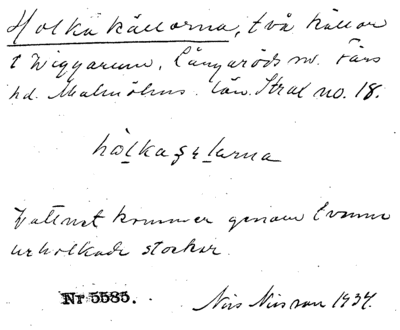 Holka källorna, två källor
i Wiggarum, Långaröds sn. Färs
hd. Malmöhus. län. Strat no. 18.
Vattnet kommer genom tvenne
urholkade stockar.
Nr 5585. Nils Nilsson 1937.